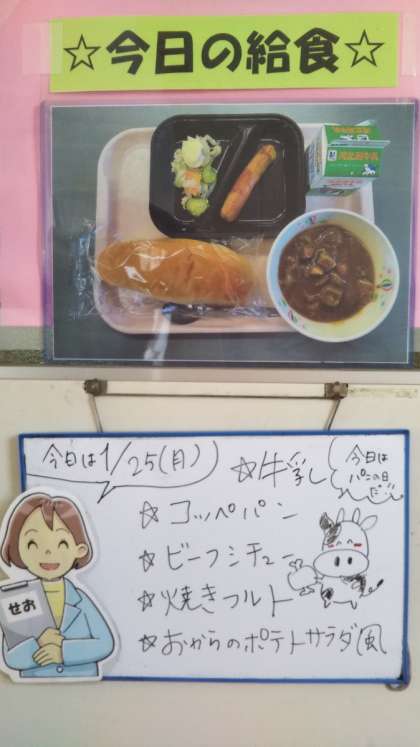 ☆今日の給食☆
今日は1/25(月)
☆牛乳
今日は
パンの日
だ
☆コッペパン
☆ビーフシチュー
☆焼きフルト
☆おからのポテトサラダ風
せお